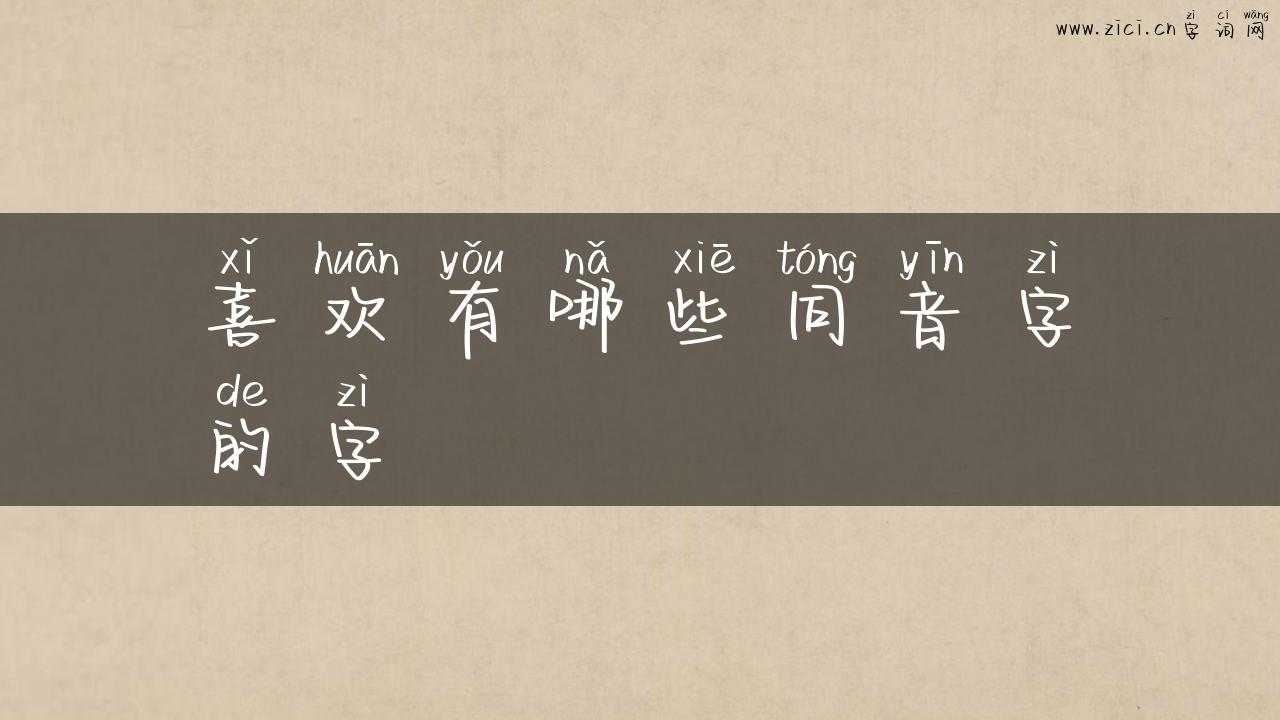 zì cí wǎng
www.zici.cn 字词网
xǐ huān yǒu nǎ xiē tóng yīn zì
喜欢有哪些同音字
de zì
的字